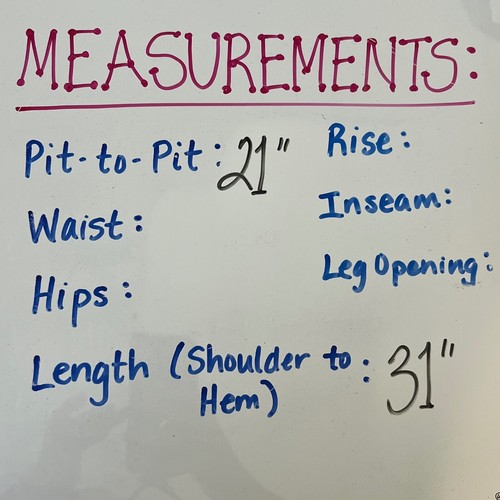 MEASUREMENTS:
Pit-to-Pit: 21"
Waist:
Hips:
Length (Shoulder to Hem): 31"
Rise:
Inseam:
Leg Opening: